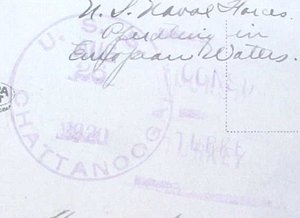 U. S. Naval Forces.
Operating in
European Waters.
U. S. S.
25
1920
CHATTANOOGA
TURKEY